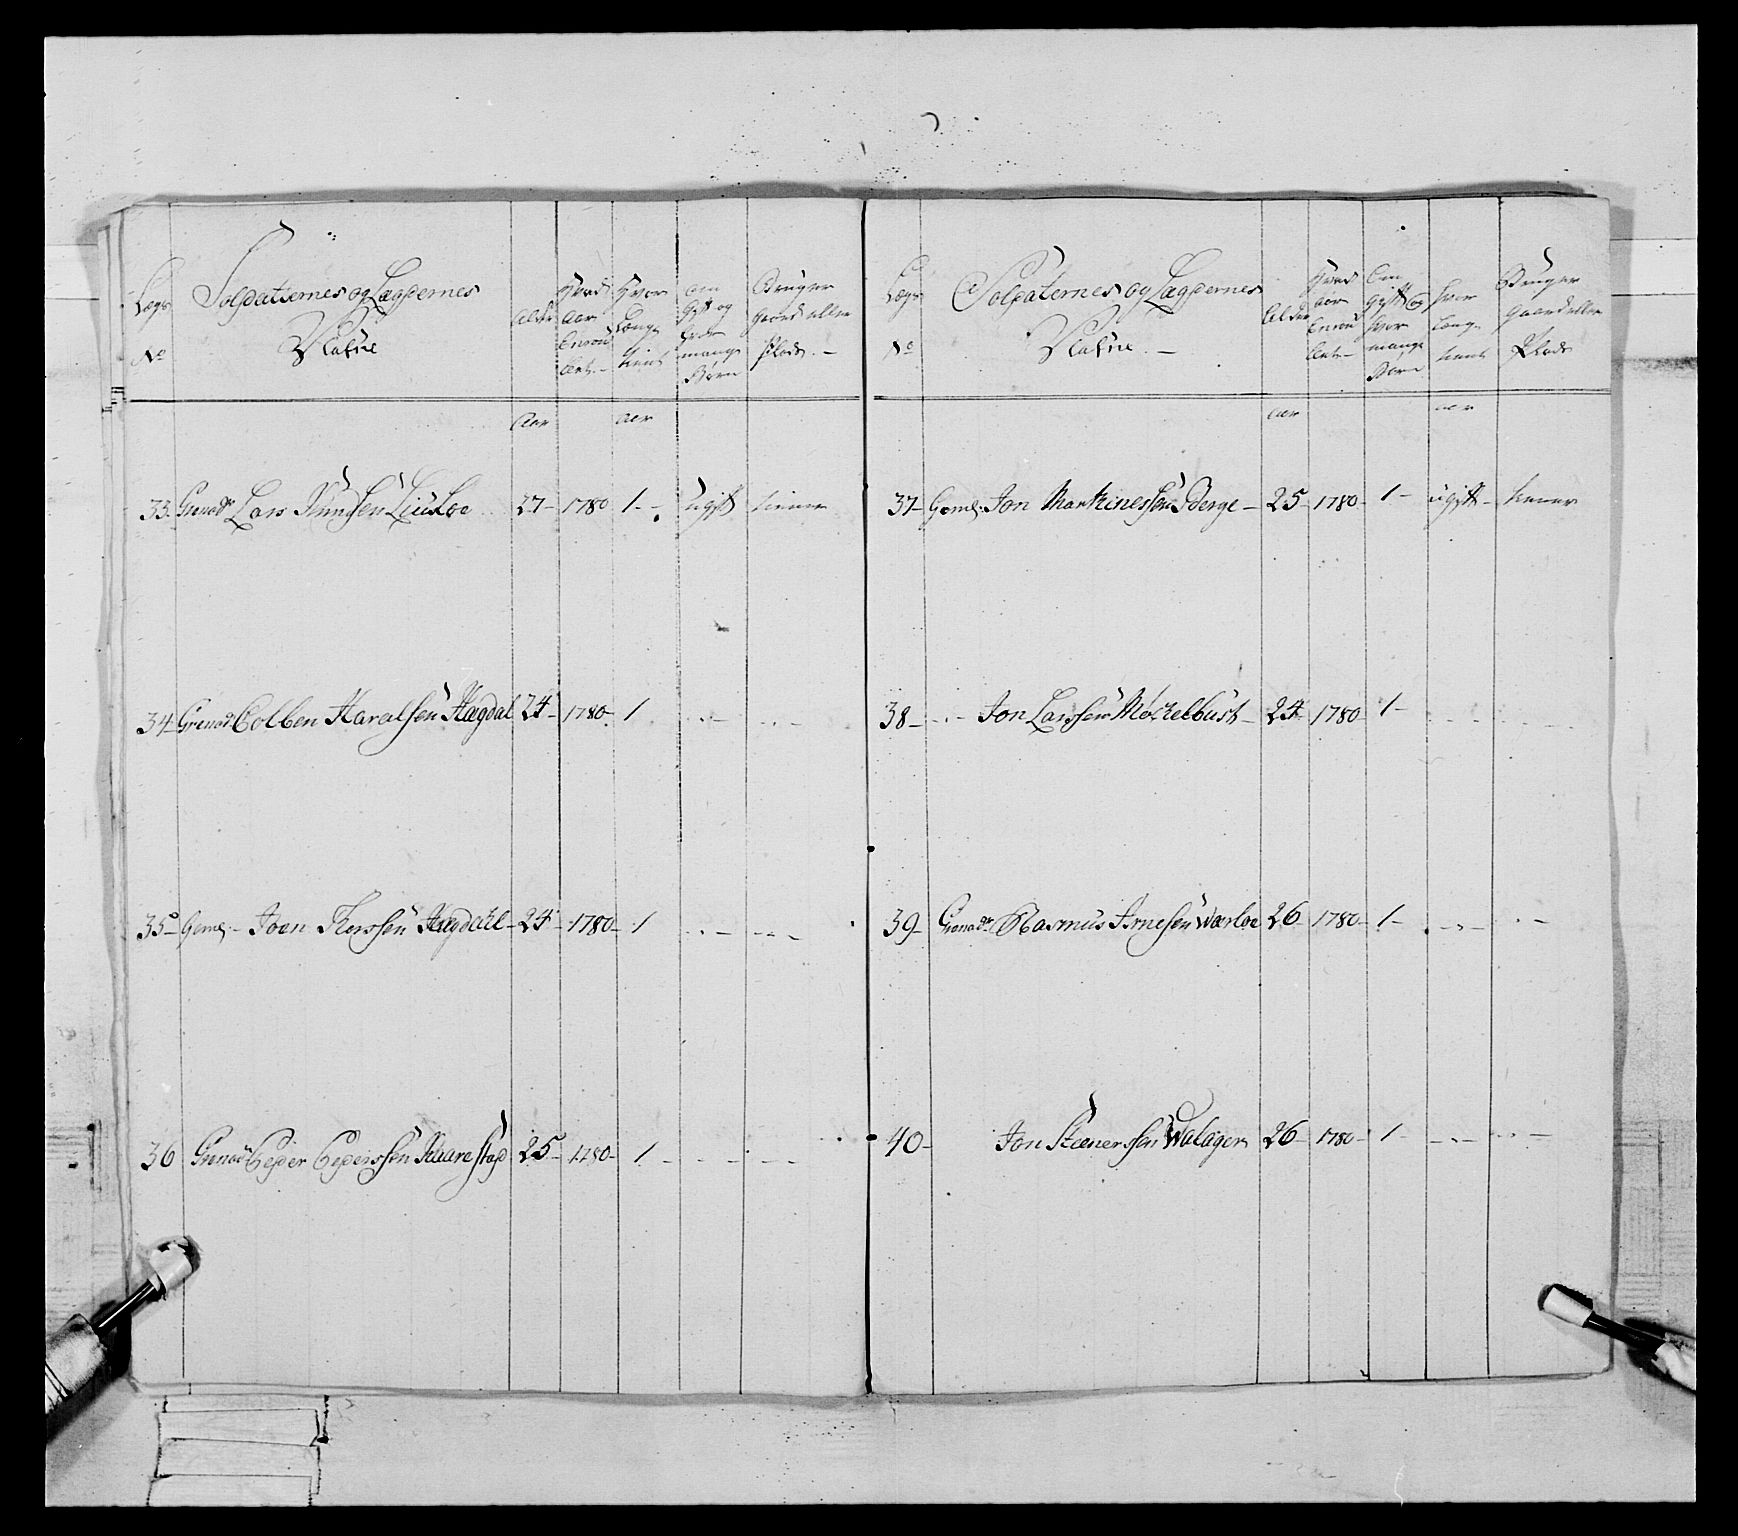 Lægs No
Soldaternes og Lægdernes Nafne
Alder
Hvad Aar Enroulleret
Hvor Længe tient
om Gift og hvor mange Børn
Bruger Gaard eller Plads
Aar
Aar
33 Grenadr Lars Knudsen 27 1780 1 ugift tiener
34 Grenadr Colben Haralsen Hægdal 24 1780 1
35 Geml. Joen Hægdahl 24 1780 1
36 Grenad Peder Pedersen 25 1780 1
Lægs No
Soldaternes og Lægdernes Nafne
Alder
Hvad Aar Enroulleret
Om Gift og hvor mange Børn
hvor længe tient
Bruger Gaard eller Plads
Aar
aar
37 Geml. Jon Marthinessen Berge 25 1780 1 ugift tiener
38 Jon Larssen Mokelbust 24 1780 1
39 Grenadr Rasmus Arnesen Warloe 26 1780 1
40 Jon Steenersen Walager 26 1780 1